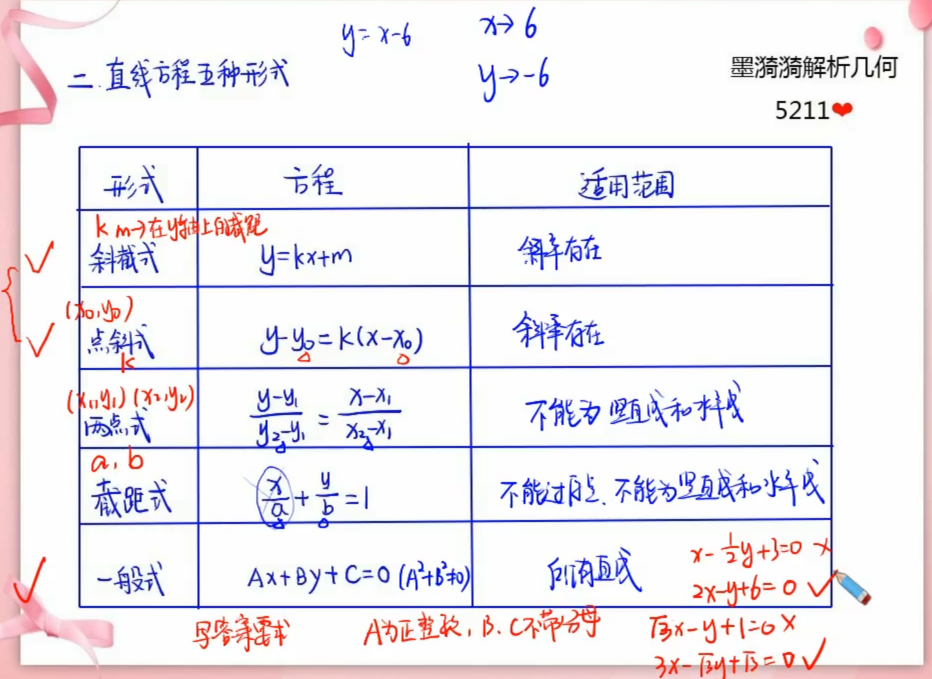 y=x-6 x→6
y→-6
二.直线方程五种形式
墨漪漪解析几何
5211❤
形式 方程 适用范围
k m→在y轴上的截距
斜截式 y=kx+m 斜率存在
(x₀,y₀)
点斜式 y-y₀=k(x-x₀) 斜率存在
k
(x₁,y₁) (x₂,y₂)
两点式 (y-y₁)/(y₂-y₁)=(x-x₁)/(x₂-x₁) 不能为竖直线和水平线
a,b
截距式 x/a+y/b=1 不能过原点.不能为竖直线和水平线
一般式 Ax+By+C=0 (A²+B²≠0) 所有直线
x-1/2y+3=0 ×
2x-y+6=0 ✓
写答案要求 A为正整数,B.C不带分母
√3x-y+1=0 ×
3x-√3y+√3=0 ✓